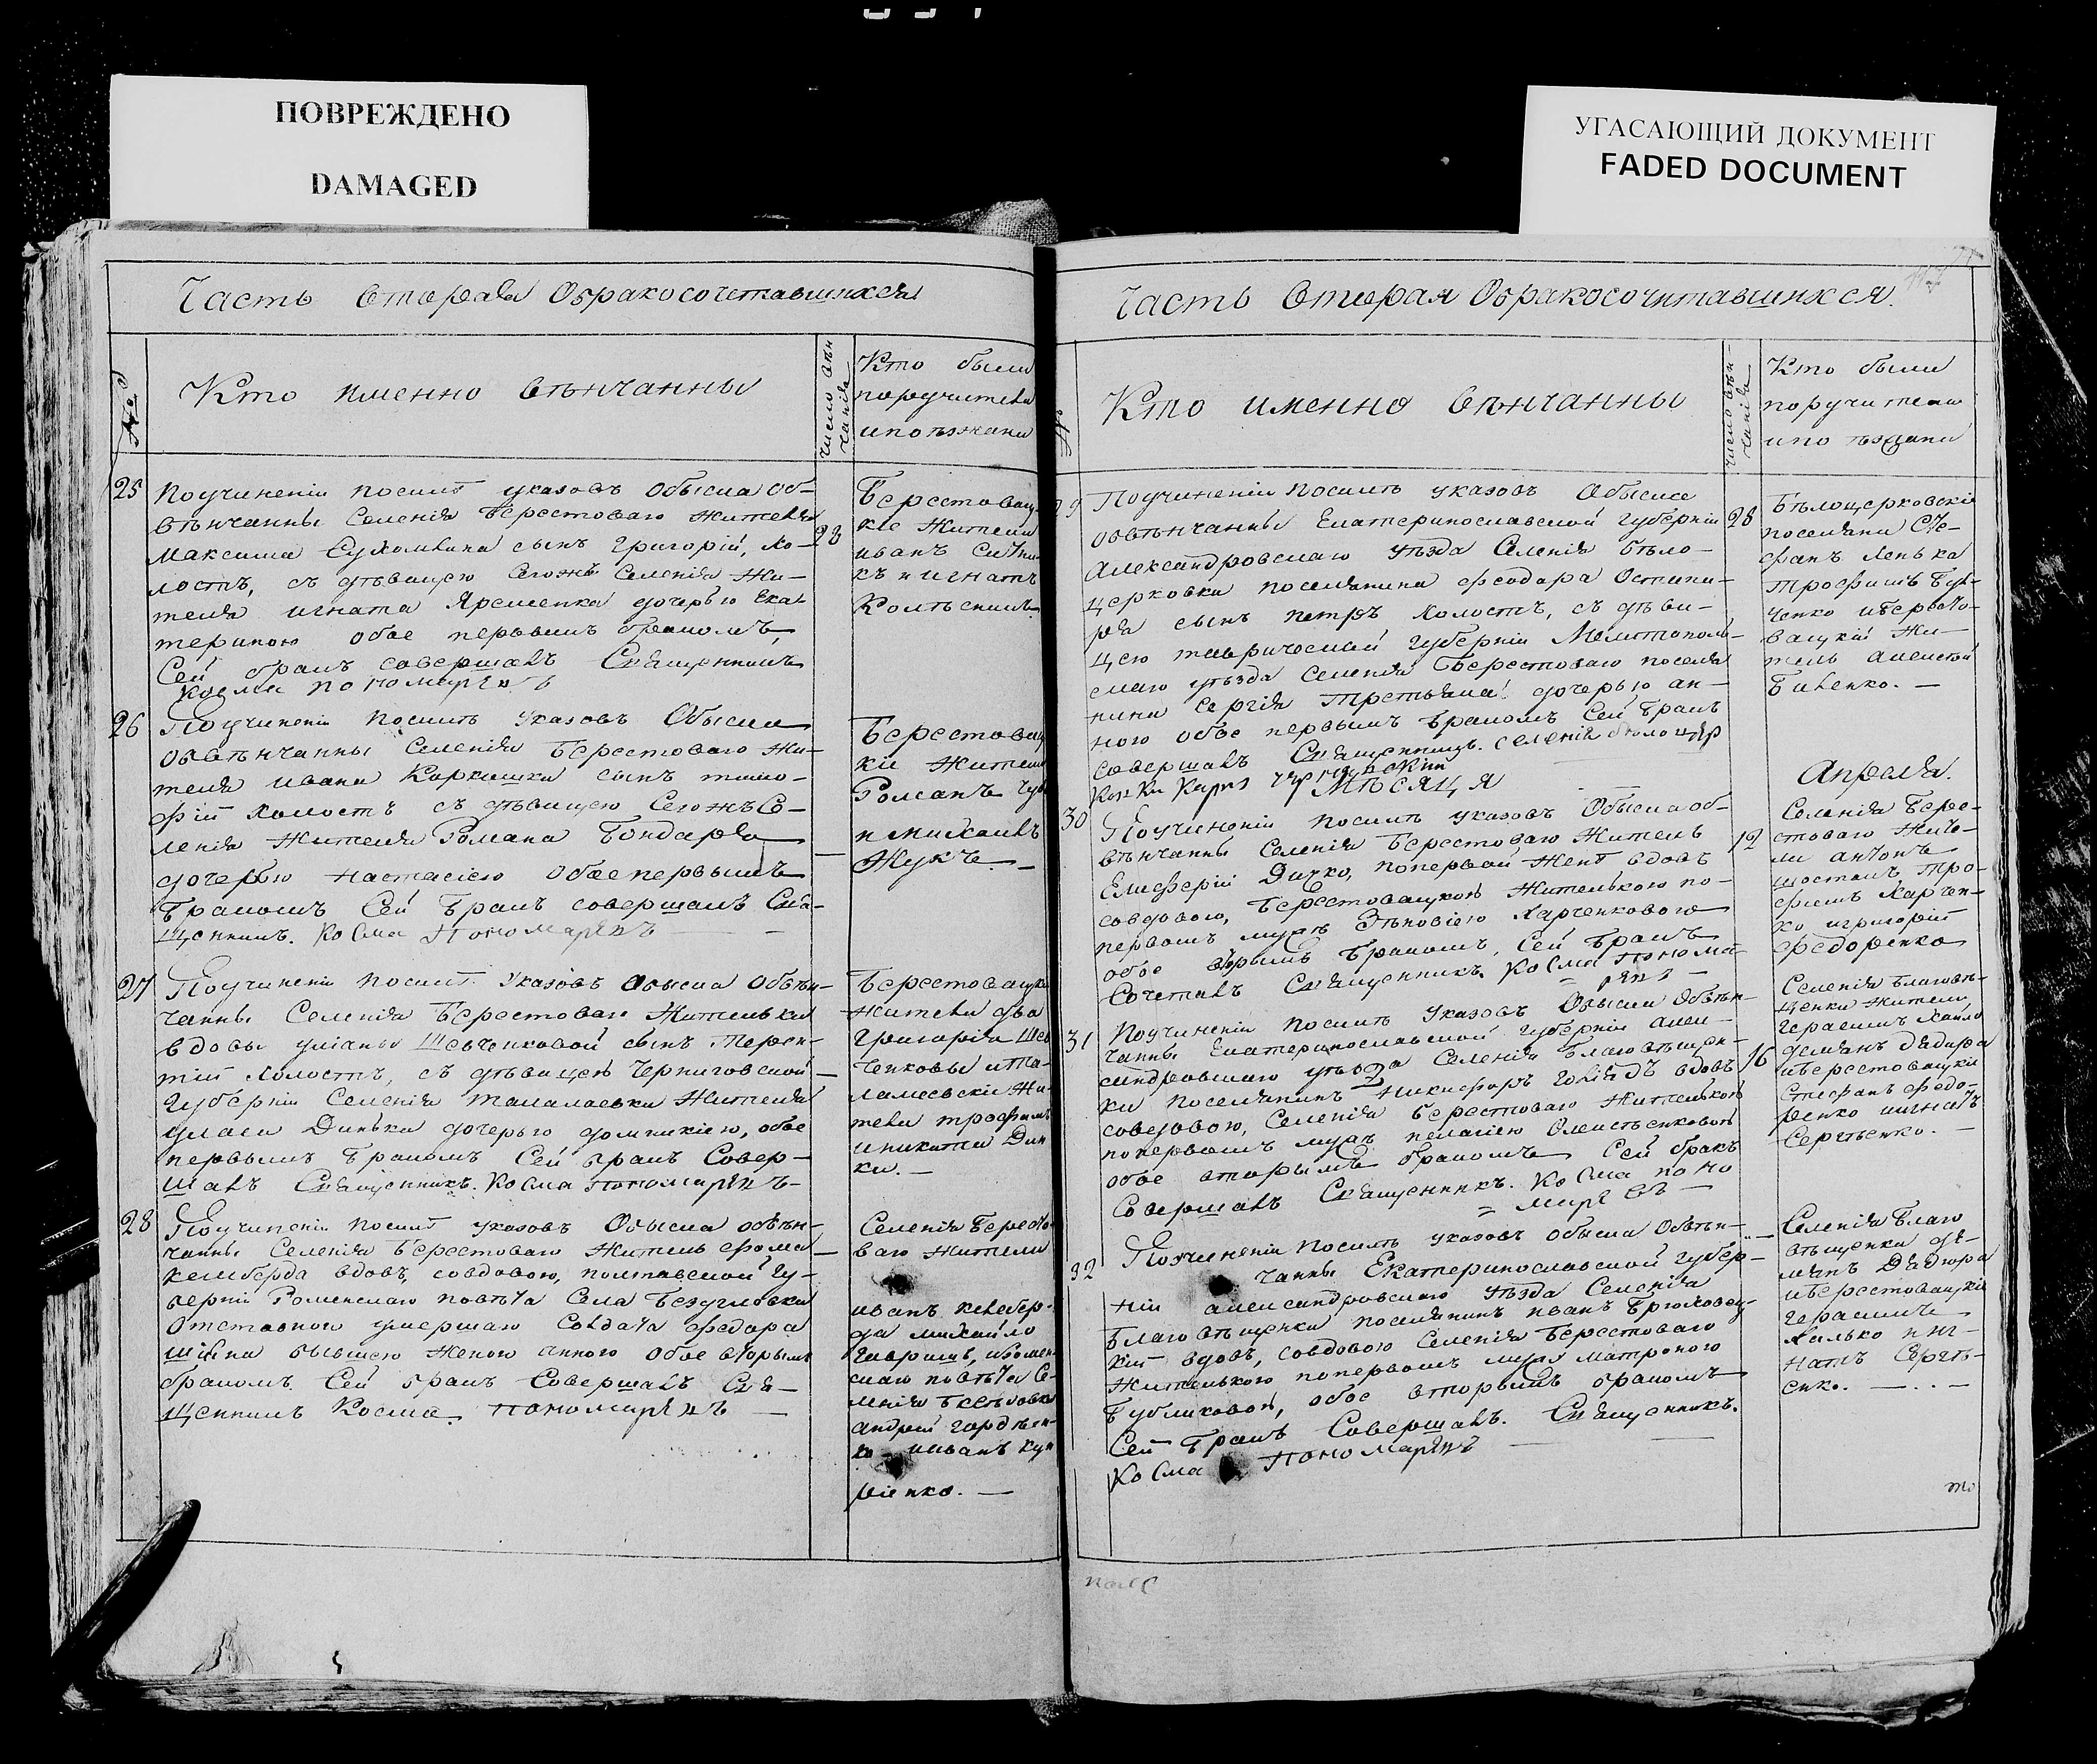 ПОВРЕЖДЕНО
DAMAGED
УГАСАЮЩИЙ ДОКУМЕНТ
FADED DOCUMENT
Часть вторая Обракосочетавшихся
№
Кто именно вѣнчанны
число вѣн
чанія
Кто были
поручители
и поѣзжани
25
Поучиненіи по силѣ указовъ обыска об-
вѣнчанны Селенія Берестоваго жителя
Максима сынъ Григорій, хо-
лостъ, съ дѣвицею Сегожъ Селенія жи-
теля Игната Яременка дочерью Ека-
териною обое первымъ бракомъ
Сей бракъ совершалъ Священникъ
Косма Пономаревъ
28
Берестовац-
кіе жители
Иванъ
къ и Игнатъ
26
Поучиненіи по силѣ указовъ Обыска
обвѣнчанны Селенія Берестоваго жи-
теля Ивана сынъ тимо-
фій холостъ съ дѣвицею СегожъСе-
ленія жителя Романа Бондаря
дочерью настасіею обое первымъ
бракомъ Сей бракъ совершалъ Свя-
щенникъ. Косма Пономаревъ
Берестовац
кіе жители
Романъ
и Михаилъ
Жукъ
27
Поучиненіи по силѣ Указовъ обыска обвѣн-
чанны Селенія Берестоваго жительки
вдовы уліаны Шевченковой сынъ Терен-
тій холостъ, съ дѣвицею Черниговской
Губерніи Селенія талалаевки жителя
Динька дочерью домникіею, обое
первымъ бракомъ Сей бракъ Совер-
шалъ Священникъ. Косма Пономаревъ
Берестовацкіе
жители два
Григорія Шев
ченковы и та-
лалаевскіе жи-
тели трофимъ
и никита Дин
ки.
28
Поучиненіи по силѣ указовъ Обыска обвѣн-
чанны Селенія Берестоваго житель фома
кемберда вдовъ, совдовою, полтавской Гу-
берніи Роменскаго повѣта Села Безугловки
Отставного умершаго Солдата федора
бывшею женою анною обое вторымъ
бракомъ. Сей бракъ Совершалъ Свя-
щенникъ Косма Пономаревъ
Селенія Бересто
ваго жители
иванъ кемберъ-
да михайло
Гавришъ, иРомен-
скаго повѣта Се-
ленія
андрей гордѣен-
ко иванъ
ріенко.
Часть вторая Обракосочитавшихся.
Кто именно вѣнчанны
число вѣн
чанія
Кто были
поручители
и поѣздани
29
Поучиненіи по силѣ указовъ Обыска
обвѣнчанны Екатеринославской губерніи
Александровскаго уѣзда Селенія бѣло-
церковки поселянина феодора
ря сынъ петръ холостъ, съ дѣви-
цею таврической губерніи Мелитополь-
скаго уѣзда Селенія Берестоваго поселя
нина Сергія Третьяка дочерью ан-
ною обое первымъ бракомъ Сей бракъ
совершалъ Священникъ. Селенія бѣлоцер
28
Бѣлоцерковскіе
поселяни Сте-
фанъ
Трофимъ
ченко ибересто-
вацкій жи-
тель алексѣй
Биленко.
Мѣсяця
Апреля.
30
Поучиненіи по силѣ указовъ Обыска об-
вѣнчанны Селенія Берестоваго Житель
Елисферій Дичко, попервой женѣ вдовъ
совдовою, Берестовацкою жителькою по-
первомъ мужѣ Зѣновіею Харченковою
обое вторымъ бракомъ, Сей бракъ
Сочеталъ Священникъ. Косма Понома-
ревъ
12
Селенія Бере-
стоваго жите-
ли антонъ
шостакъ, тро-
фимъ Харчен-
ко игригорій
федоренко
31
Поучиненіи по силѣ Указовъ Обыска Обвѣн-
чанны Екатеринославской губерніи алек-
сандровскаго уѣзда Селенія Благовѣщен-
ки поселянинъ Никифоръ вдовъ
совдовою, Селенія берестоваго жителькою
попервомъ мужѣ пелагіею Олексѣенковой
обое вторымъ бракомъ Сей бракъ
Совершалъ Священникъ. Косма Поно
маревъ
16
Селенія Благовѣ-
щенки жители
Герасимъ
демянъ Дядюра
иберестовацкіи
Стефанъ федо-
ренко иигнатъ
Сергѣенко.
32
Поучиненіи по силѣ указовъ обыска Обвѣн-
чанны Екатеринославской губер-
ніи александровскаго уѣзда Селенія
Благовѣщенки поселянинъ иванъ Брюховец-
кій вдовъ, совдовою Селенія Берестоваго
жителькою попервомъ мужѣ матроною
Бубликовой, обое вторымъ бракомъ
Сей Бракъ Совершалъ. Священникъ.
Косма Пономаревъ
Селенія Благо
вѣщенки де-
мянъ Дядюра
иберестовацкіе
герасимъ
халько и иг-
натъ Сергѣ-
енко.